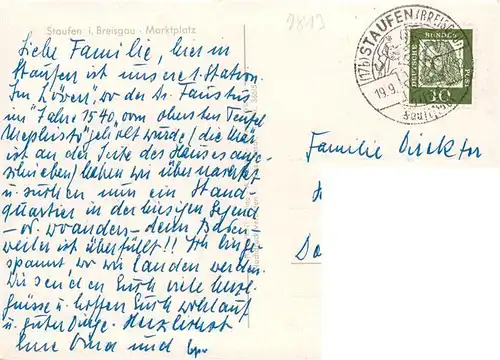 9813
Staufen i. Breisgau - Marktplatz
(17b) STAUFEN (BREISGAU)
19.9.
DEUTSCHE BUNDESPOST
10
Liebe Familie, hier in
Staufen ist unsere 1. Station.
Im "Löwen", wo der Dr. Faustus
im "Jahre 1540, vom obersten Teufel
Mephisto" geholt wurde (die Mär
ist an der Seite des Hauses ange-
schrieben) haben wir übernachtet
u. suchen nun ein Stand-
quartier in der hiesigen Gegend
- od. woanders - denn Baden-
weiler ist überfüllt!! Bin
spannt, wo wir landen werden.
Wir senden Euch viele herzl.
Grüsse u. hoffen Euch wohlauf
u. guter Dinge. Herzlichst
Eure Oma und
Familie Direktor